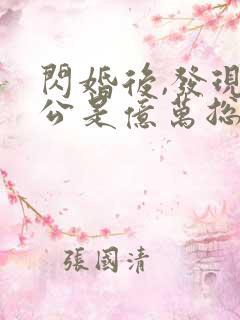 閃婚後,發現
公是億萬總
張國清